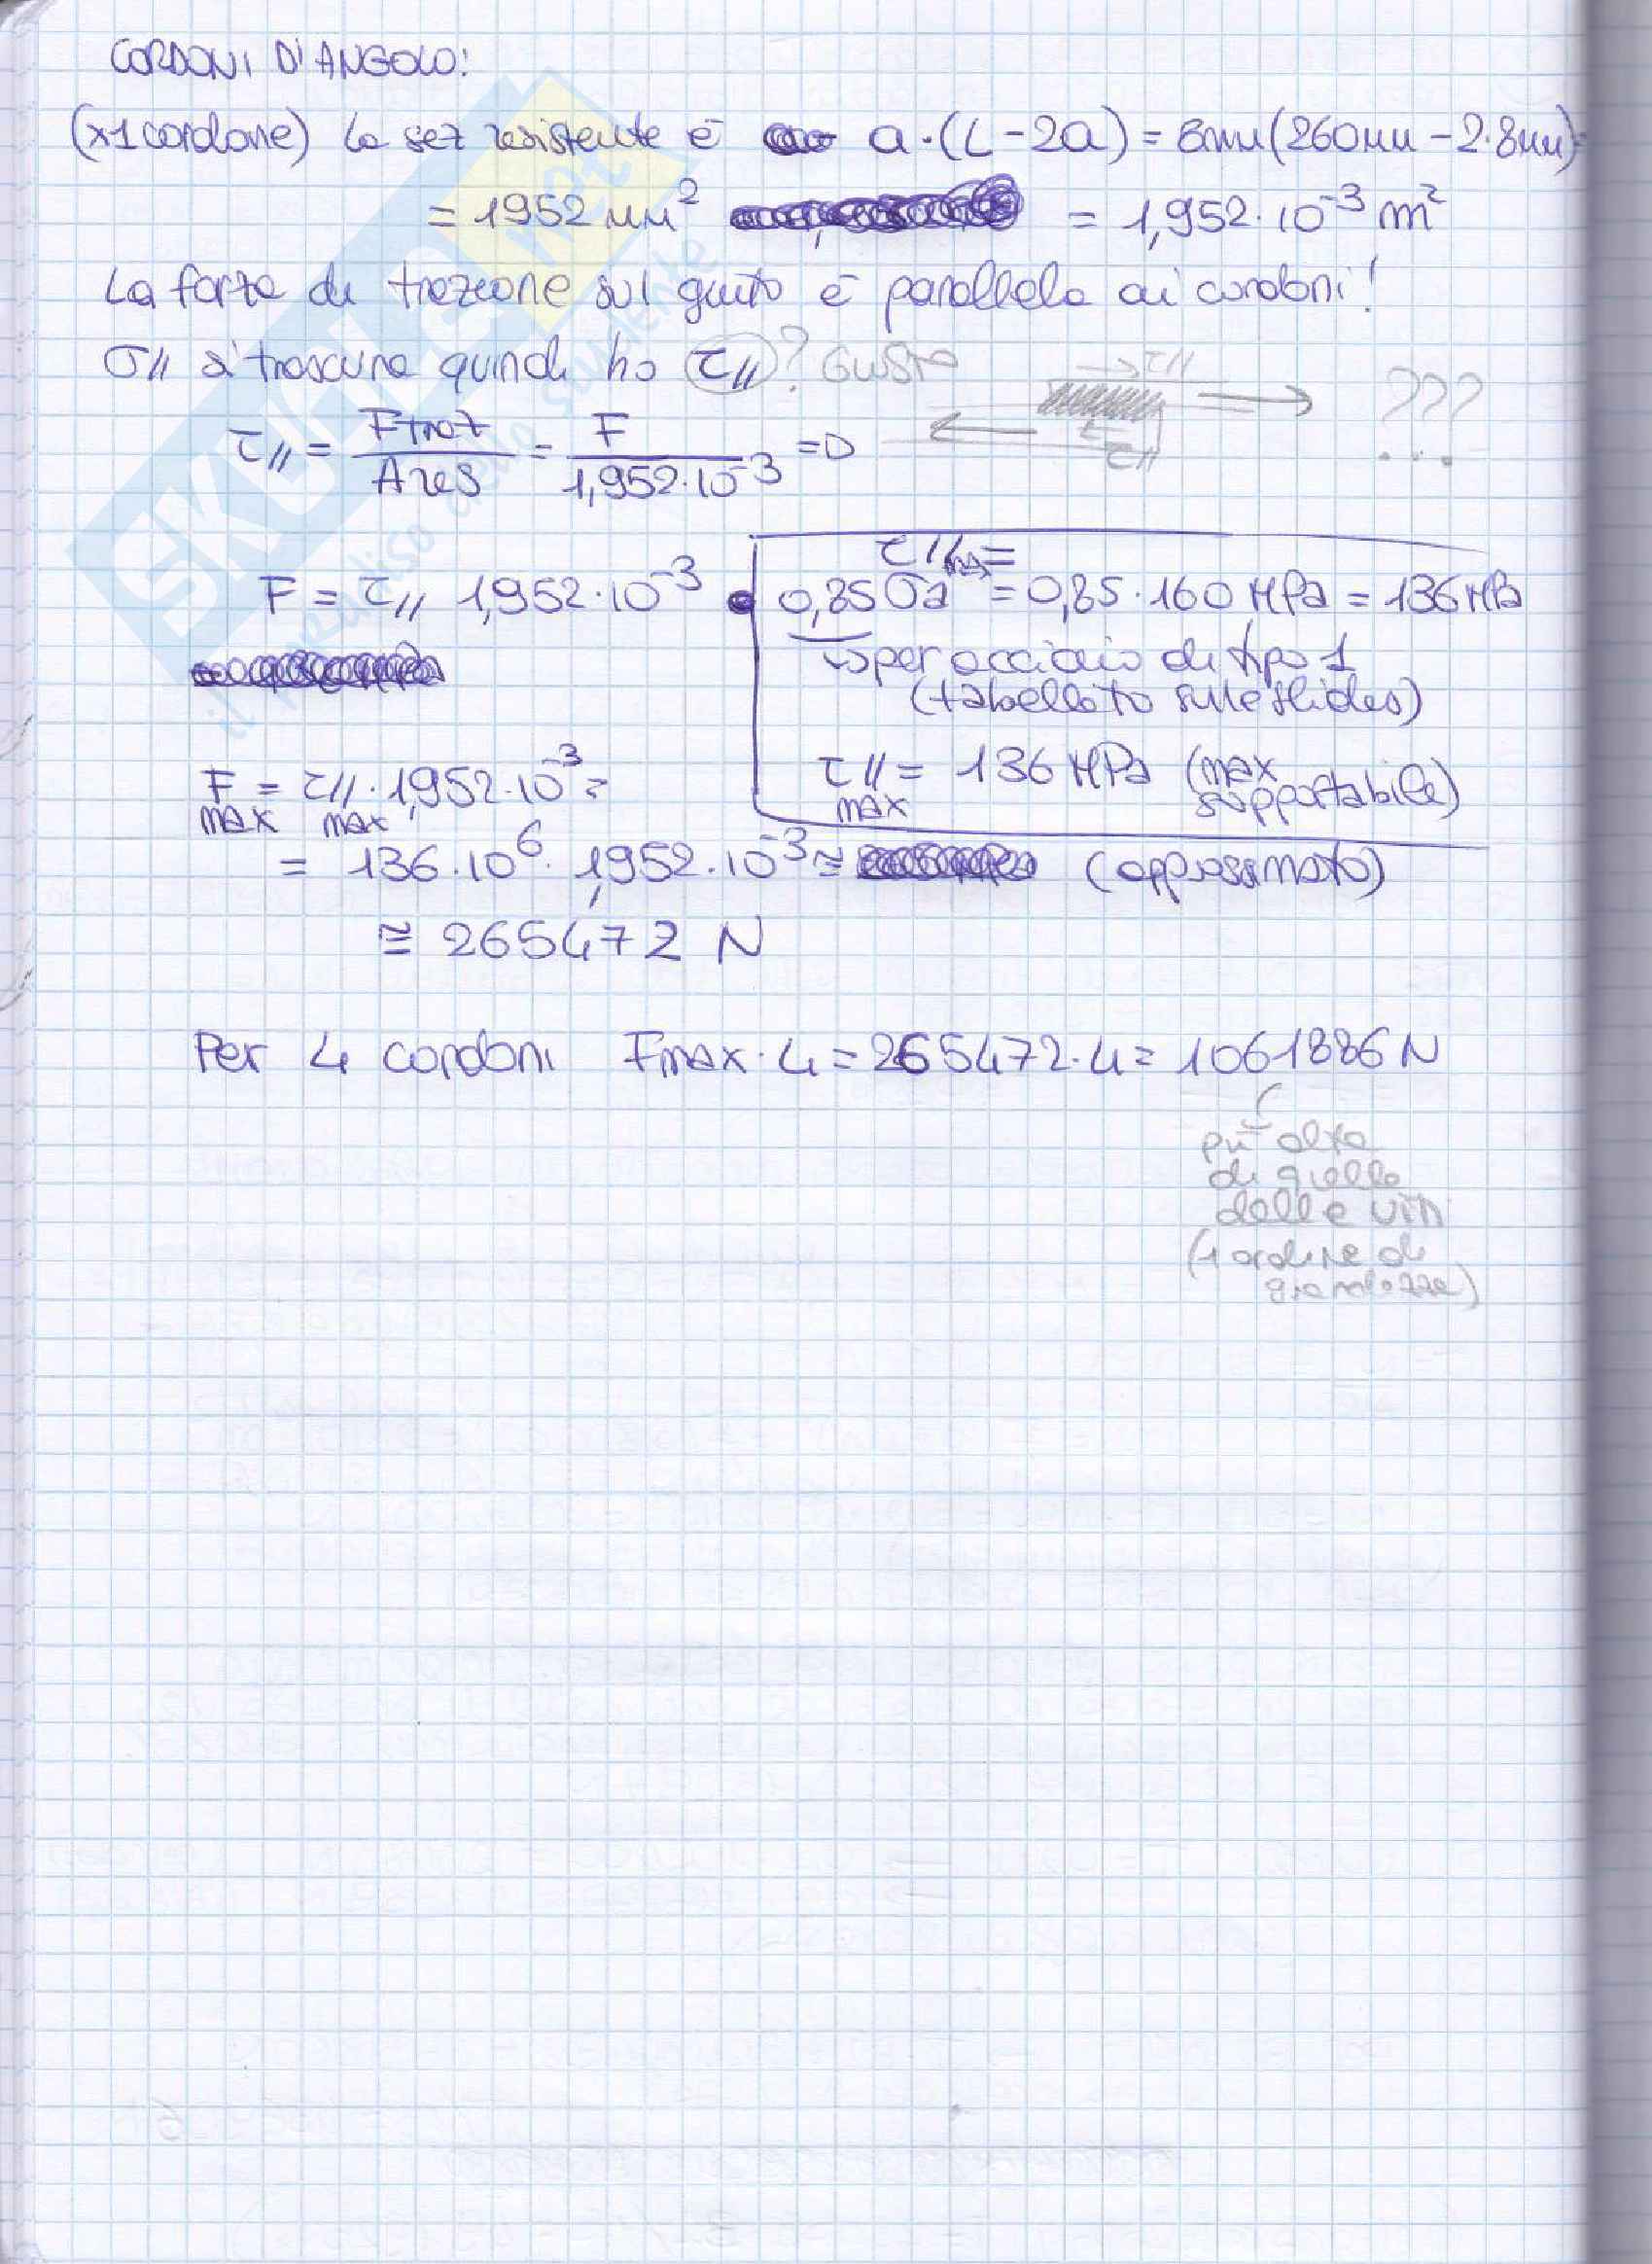 CORDONI D'ANGOLO:
(x1 cordone) la sez resistente è a·(L-2a) = 8mm (260mm - 2·8mm) =
= 1952 mm² = 1,952·10⁻³ m²
La forza di trazione sul giunto è parallela ai cordoni!
σ// si trascura quindi ho τ// ? GIUSTO
→ τ//
???
...
τ//
τ// = Ftraz/Ares = F/1,952·10⁻³ =D
τ// max =
F = τ// 1,952·10⁻³ 0,85 σa = 0,85·160 MPa = 136 MPa
↳ per acciaio di tipo 1
(tabellato sulle slides)
τ// max = 136 MPa (max supportabile)
F max = τ// max · 1,952·10⁻³ =
= 136·10⁶· 1,952·10⁻³ ≅ (approssimato)
≅ 265472 N
Per 4 cordoni Fmax·4 = 265472·4 = 1061886 N
più alta
di quella
delle viti
(1 ordine di
grandezza)
SKUOLA.net
il paradiso dello studente